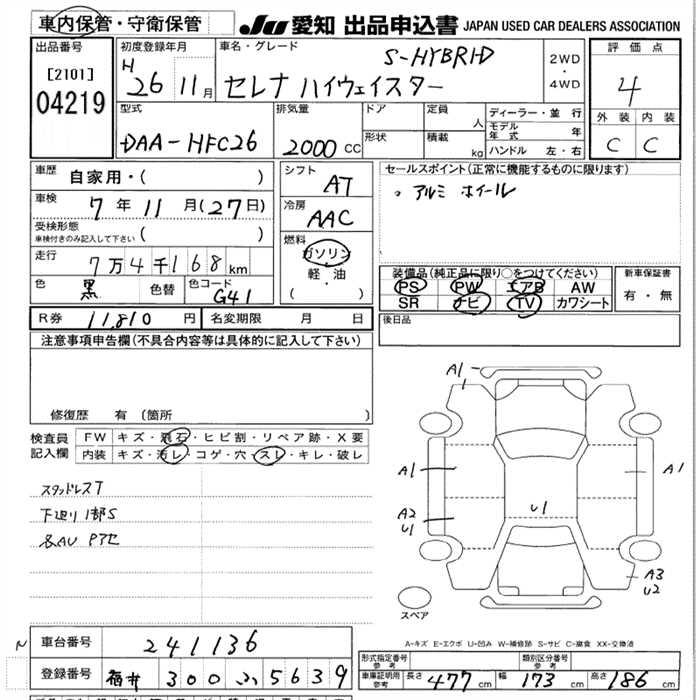 車内保管・守衛保管
JU 愛知 出品申込書 JAPAN USED CAR DEALERS ASSOCIATION
出品番号
[2101]
04219
初度登録年月
H 26 11 月
車名・グレード
S-HYBRID
セレナ ハイウェイスター
2WD
・
4WD
評価点
4
外装 内装
C C
型式
DAA-HFC26
排気量
2000 CC
ドア
形状
定員
人
積載
kg
ディーラー・並行
モデル年式 年
ハンドル 左・右
車歴 自家用・( )
車検 7 年 11 月 (27日)
受検形態
車検付きのみ記入して下さい ( )
走行 7万4千168 km
色 黒 色替 色コード G41
シフト AT
冷房 AAC
燃料
ガソリン
軽・油
( ・ )
セールスポイント(正常に機能するものに限ります)
。アルミ ホイール
装備品(純正品に限り○をつけてください)
PS PW エアB AW
SR ナビ TV カワシート
新車保証書
有・無
R券 11,810 円 名変期限 月 日
後日品
注意事項申告欄(不具合内容等は具体的に記入して下さい)
修復歴 有 (箇所 )
検査員記入欄
FW キズ・飛石・ヒビ割・リペア跡・X要
内装 キズ・汚レ・コゲ・穴・スレ・キレ・破レ
スタッドレスT
下辺り1部S
A1
1
A1
A1
U1
A2
U1
A3
U2
スペア
A-キズ E-エクボ U-凹み W-補修跡 S-サビ C-腐食 XX-交換済
N
車台番号 241136
登録番号 福井 300 ふ 5639
形式指定番号
参考
類別区分番号
参考
車庫証明用
参考
長さ 477 cm 幅 173 cm 高さ 186 cm